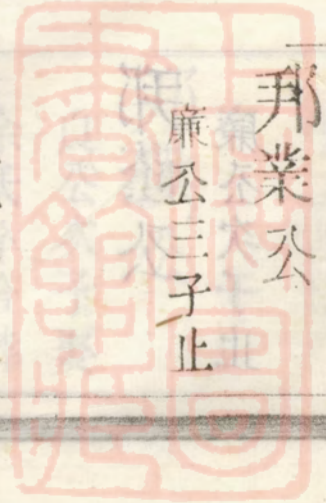 邦業公
廉公三子止